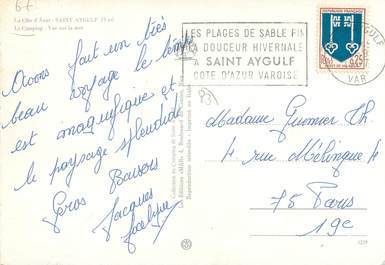 67
La Côte d'Azur - SAINT AYGULF (Var)
Le Camping - Vue sur la mer
Avons fait un très
beau voyage le temps
est magnifique et
le paysage splendide
Gros Baisers
Jacques
Jocelyne
LES PLAGES DE SABLE FIN
LA DOUCEUR HIVERNALE
A SAINT AYGULF
COTE D'AZUR VAROISE
0,25
VAR
83
Madame Th.
4 rue Mélingue
75 Paris
19e